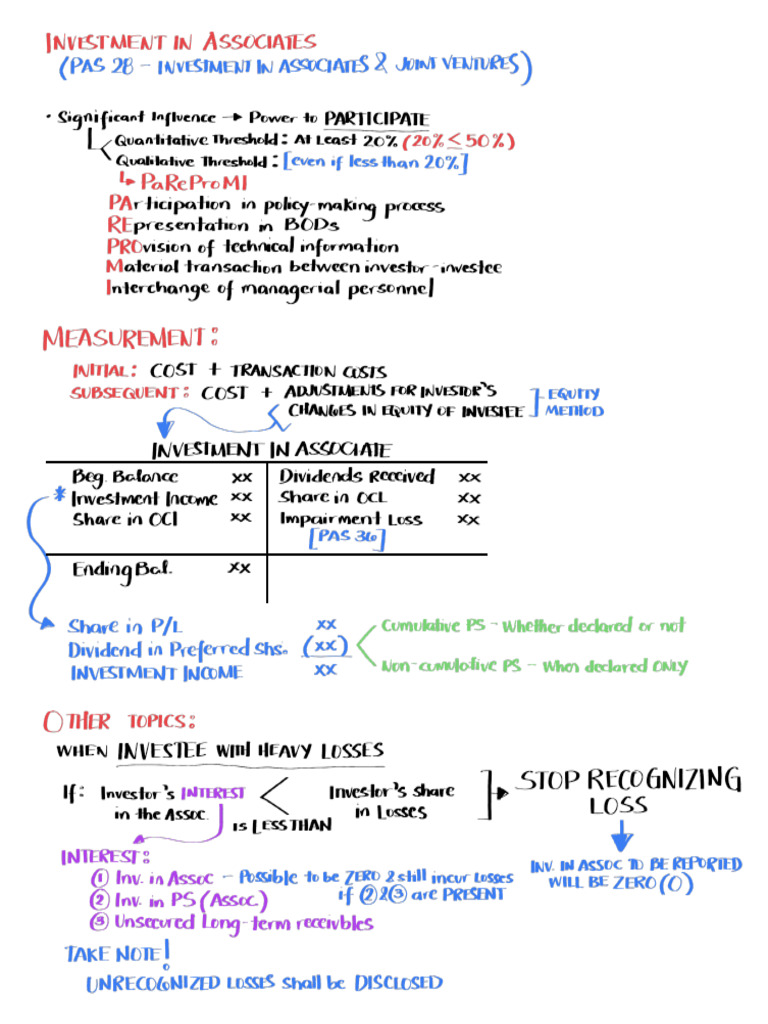 INVESTMENT IN ASSOCIATES
(PAS 28 - INVESTMENT IN ASSOCIATES & JOINT VENTURES)
• Significant Influence → Power to PARTICIPATE
Quantitative Threshold: At Least 20% (20% ≤ 50%)
Qualitative Threshold: [even if less than 20%]
↳ PaReProMI
PArticipation in policy-making process
REpresentation in BODs
PROvision of technical information
Material transaction between investor-investee
Interchange of managerial personnel
MEASUREMENT:
INITIAL: COST + TRANSACTION COSTS
SUBSEQUENT: COST + ADJUSTMENTS FOR INVESTOR'S
CHANGES IN EQUITY OF INVESTEE ] EQUITY METHOD
INVESTMENT IN ASSOCIATE
Beg. Balance xx Dividends Received xx
* Investment Income xx Share in OCL xx
Share in OCI xx Impairment Loss xx
[PAS 36]
Ending Bal. xx
Share in P/L xx
Dividend in Preferred Shs. (xx)
INVESTMENT INCOME xx
Cumulative PS - Whether declared or not
Non-cumulative PS - When declared ONLY
OTHER TOPICS:
WHEN INVESTEE WITH HEAVY LOSSES
If: Investor's INTEREST in the Assoc. < Investor's share in Losses
IS LESS THAN
STOP RECOGNIZING
LOSS
INV. IN ASSOC TO BE REPORTED
WILL BE ZERO (0)
INTEREST:
① Inv. in Assoc - Possible to be ZERO & still incur losses
if ② & ③ are PRESENT
② Inv. in PS (Assoc)
③ Unsecured Long-term receivbles
TAKE NOTE!
UNRECOGNIZED LOSSES shall be DISCLOSED